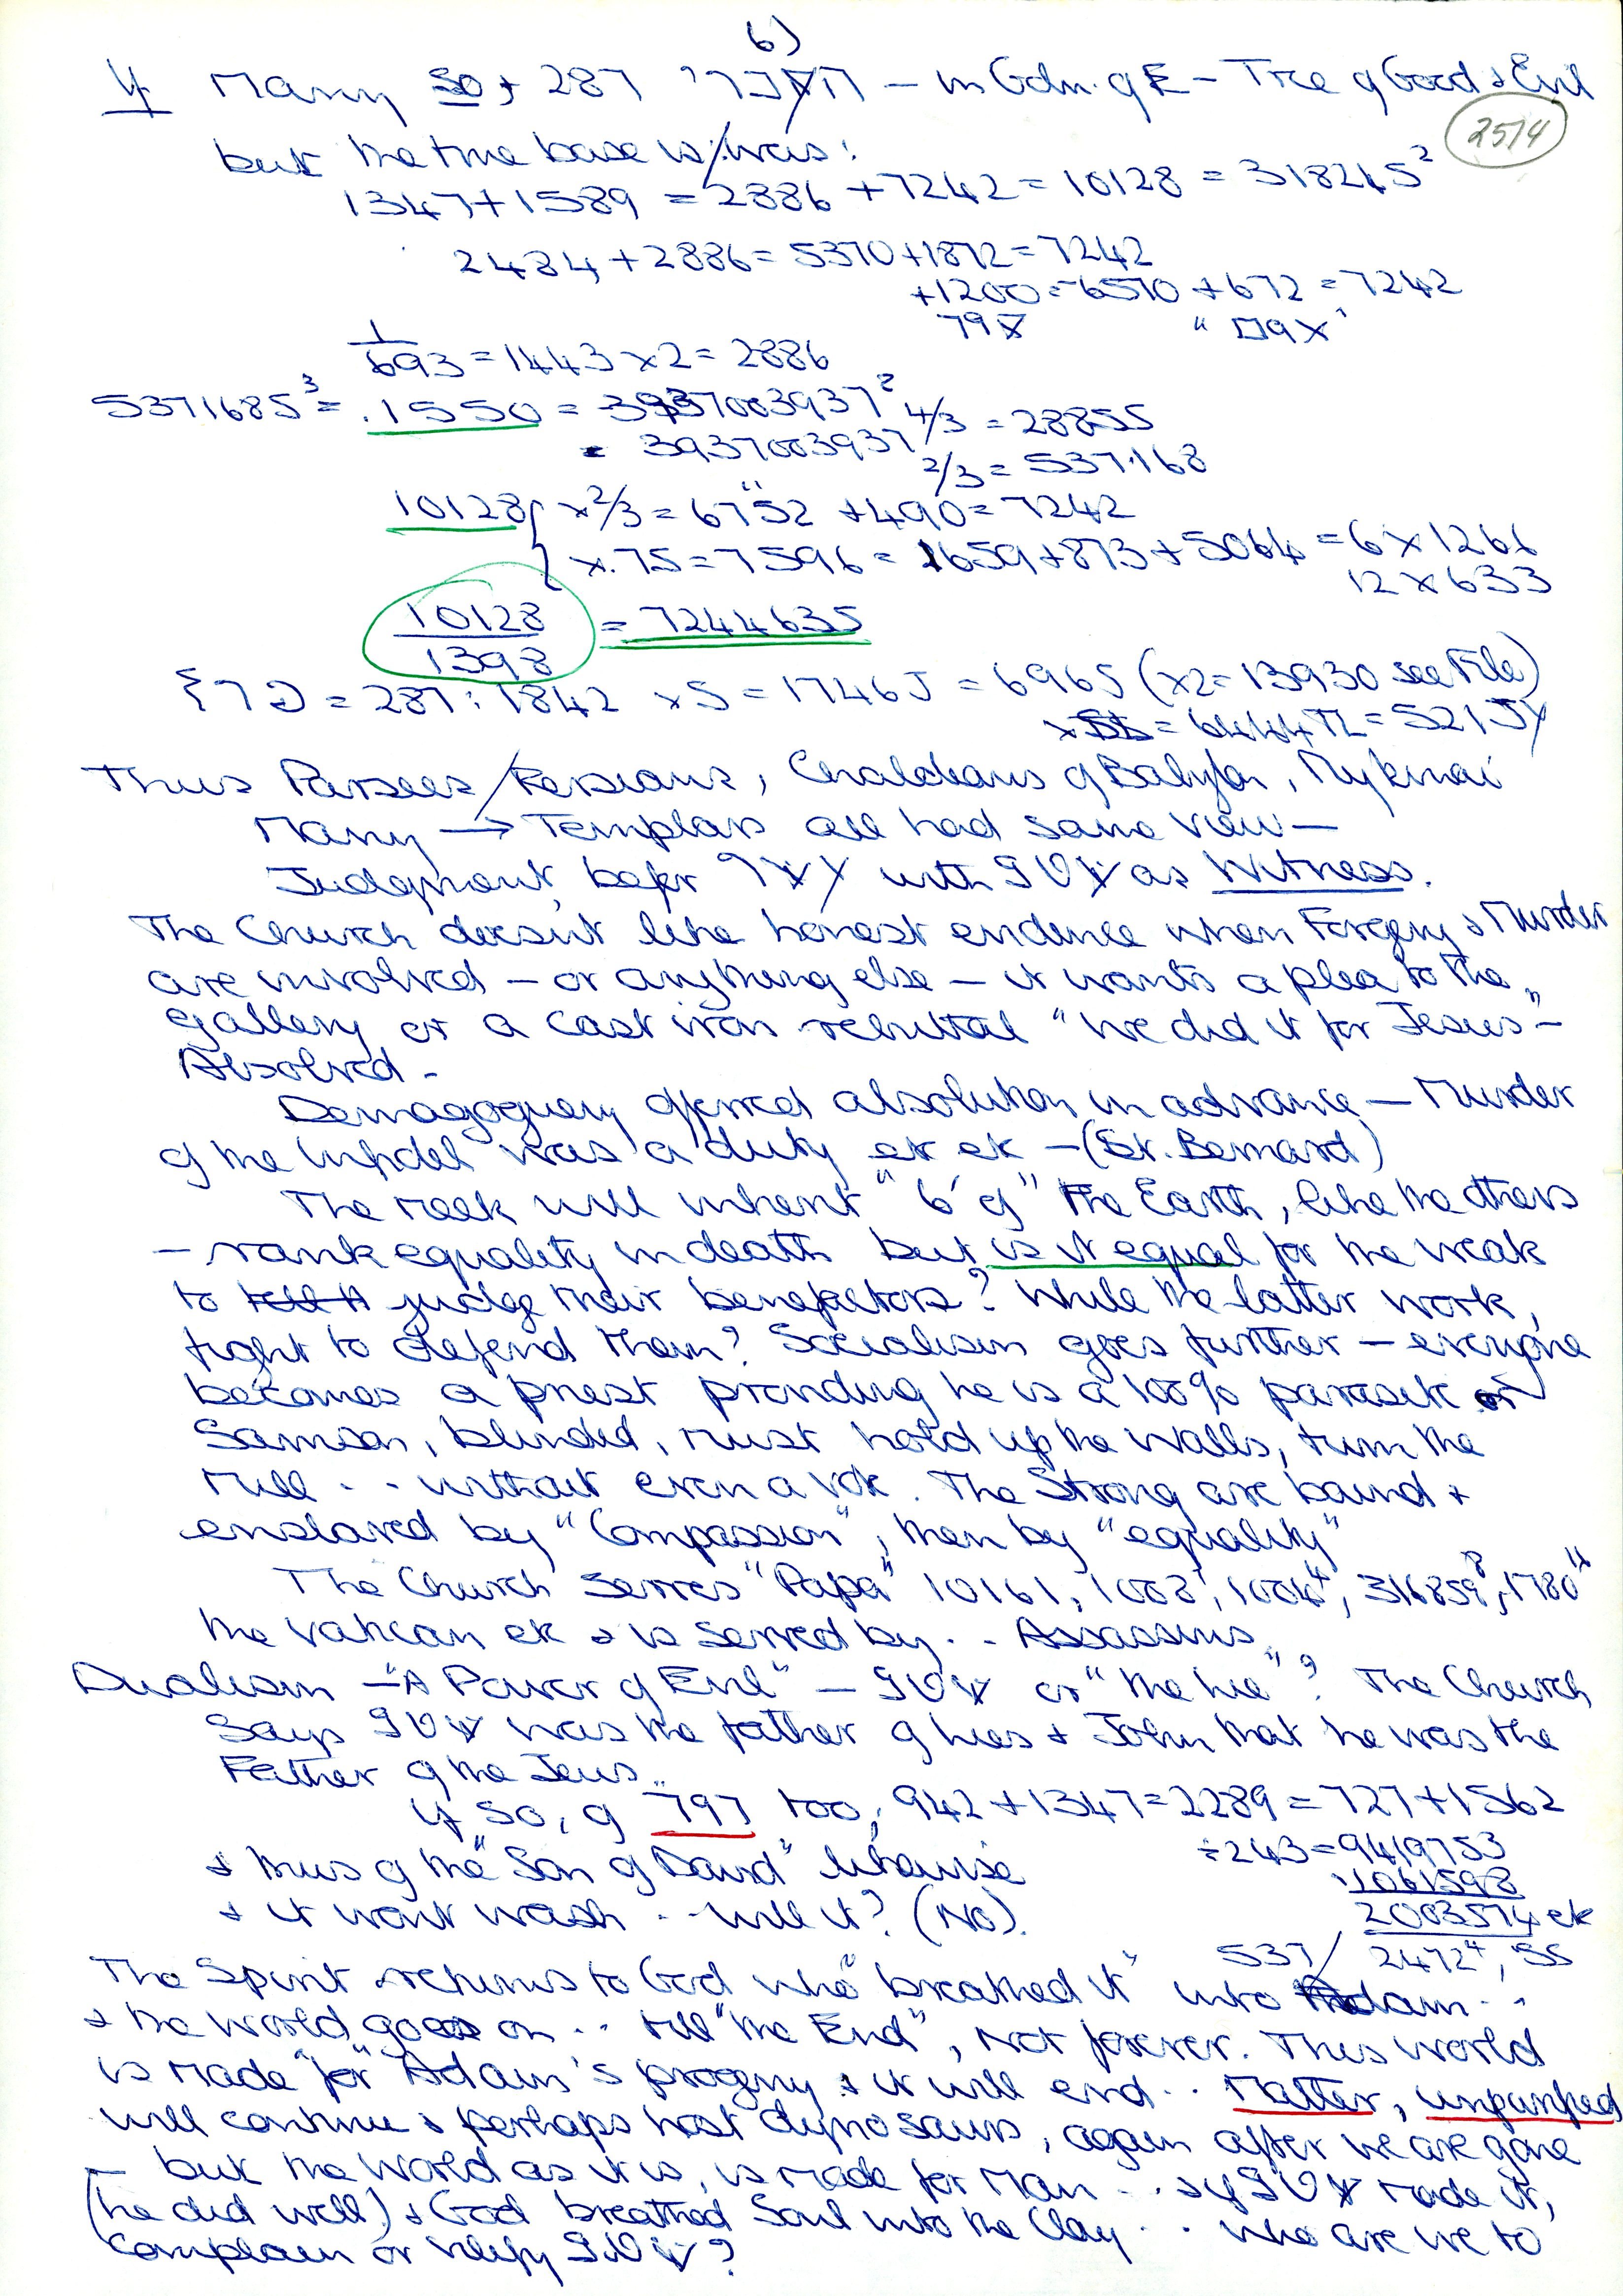 6)
If Many so, + 287 - in Gdn. of E - Tree of Good & Evil
2574
but the true base is/was:
1347 + 1589 = 2886 + 7242 = 10128 = 318245²
2484 + 2886 = 5370 + 1872 = 7242
+1200 = 6570 + 672 = 7242
1/693 = 1443 x 2 = 2886
5371685³ = .1550 = 3937003937² 4/3 = 28855
= 3937003937 2/3 = 537.168
10128 { x 2/3 = 6752 + 490 = 7242
x .75 = 7596 = 1659 + 873 + 5064 = 6 x 1266
12 x 633
10128/1398 = 7244635
= 287 : 1842 x 5 = 1746 J = 6965 (x2 = 13930 see File)
Thus Parsees/Persians, Chaldeans of Babylon, Mykinai
Many → Templars all had same view -
Judgment, befor with as Witness.
The Church doesn't like honest evidence when Forgery & Murder
are involved - or anything else - it wants a plea to the
gallery or a cast iron rebuttal "We did it for Jesus" -
Absolved -
Demagoguery offered absolution in advance - Murder
of the Infidel was a duty etc etc - (St. Bernard)
The meek will inherit "6' of" the Earth, like the others
- rank equality in death but is it equal for the weak
to judge their benefactors? While the latter work,
fight to defend them? Socialism goes further - everyone
becomes a priest providing he is a 100% parasite or
Samson, blinded, must hold up the walls, turn the
mill .. without even a vote. The Strong are bound +
enslaved by "Compassion", then by "equality"
The Church serves "Papa" 10161, 1008', 1004⁴, 316859⁸, 1780
the Vatican etc & is served by .. Assassins.
Dualism - "A Power of Evil" - or "the lie"? The Church
says was the father of lies & John that he was the
Father of the Jews.
If so, of 797 too, 942 + 1347 = 2289 = 727 + 1562
÷ 243 = 9419753
& thus of the "Son of David" likewise
1061598
& it wont wash .. will it? (No).
2003574 etc
537/ 2472⁴, 55
The Spirit returns to God who "breathed it" into Adam ..
& the world goes on .. till "the End", not forever. This world
is made "for" Adam's progeny & it will end .. Matter, unpurified
will continue & perhaps host dynosaurs, again after we are gone
- but the World as it is, is made for Man .. & if made it,
(he did well) & God breathed Soul into the Clay .. who are we to
complain or vilify ?